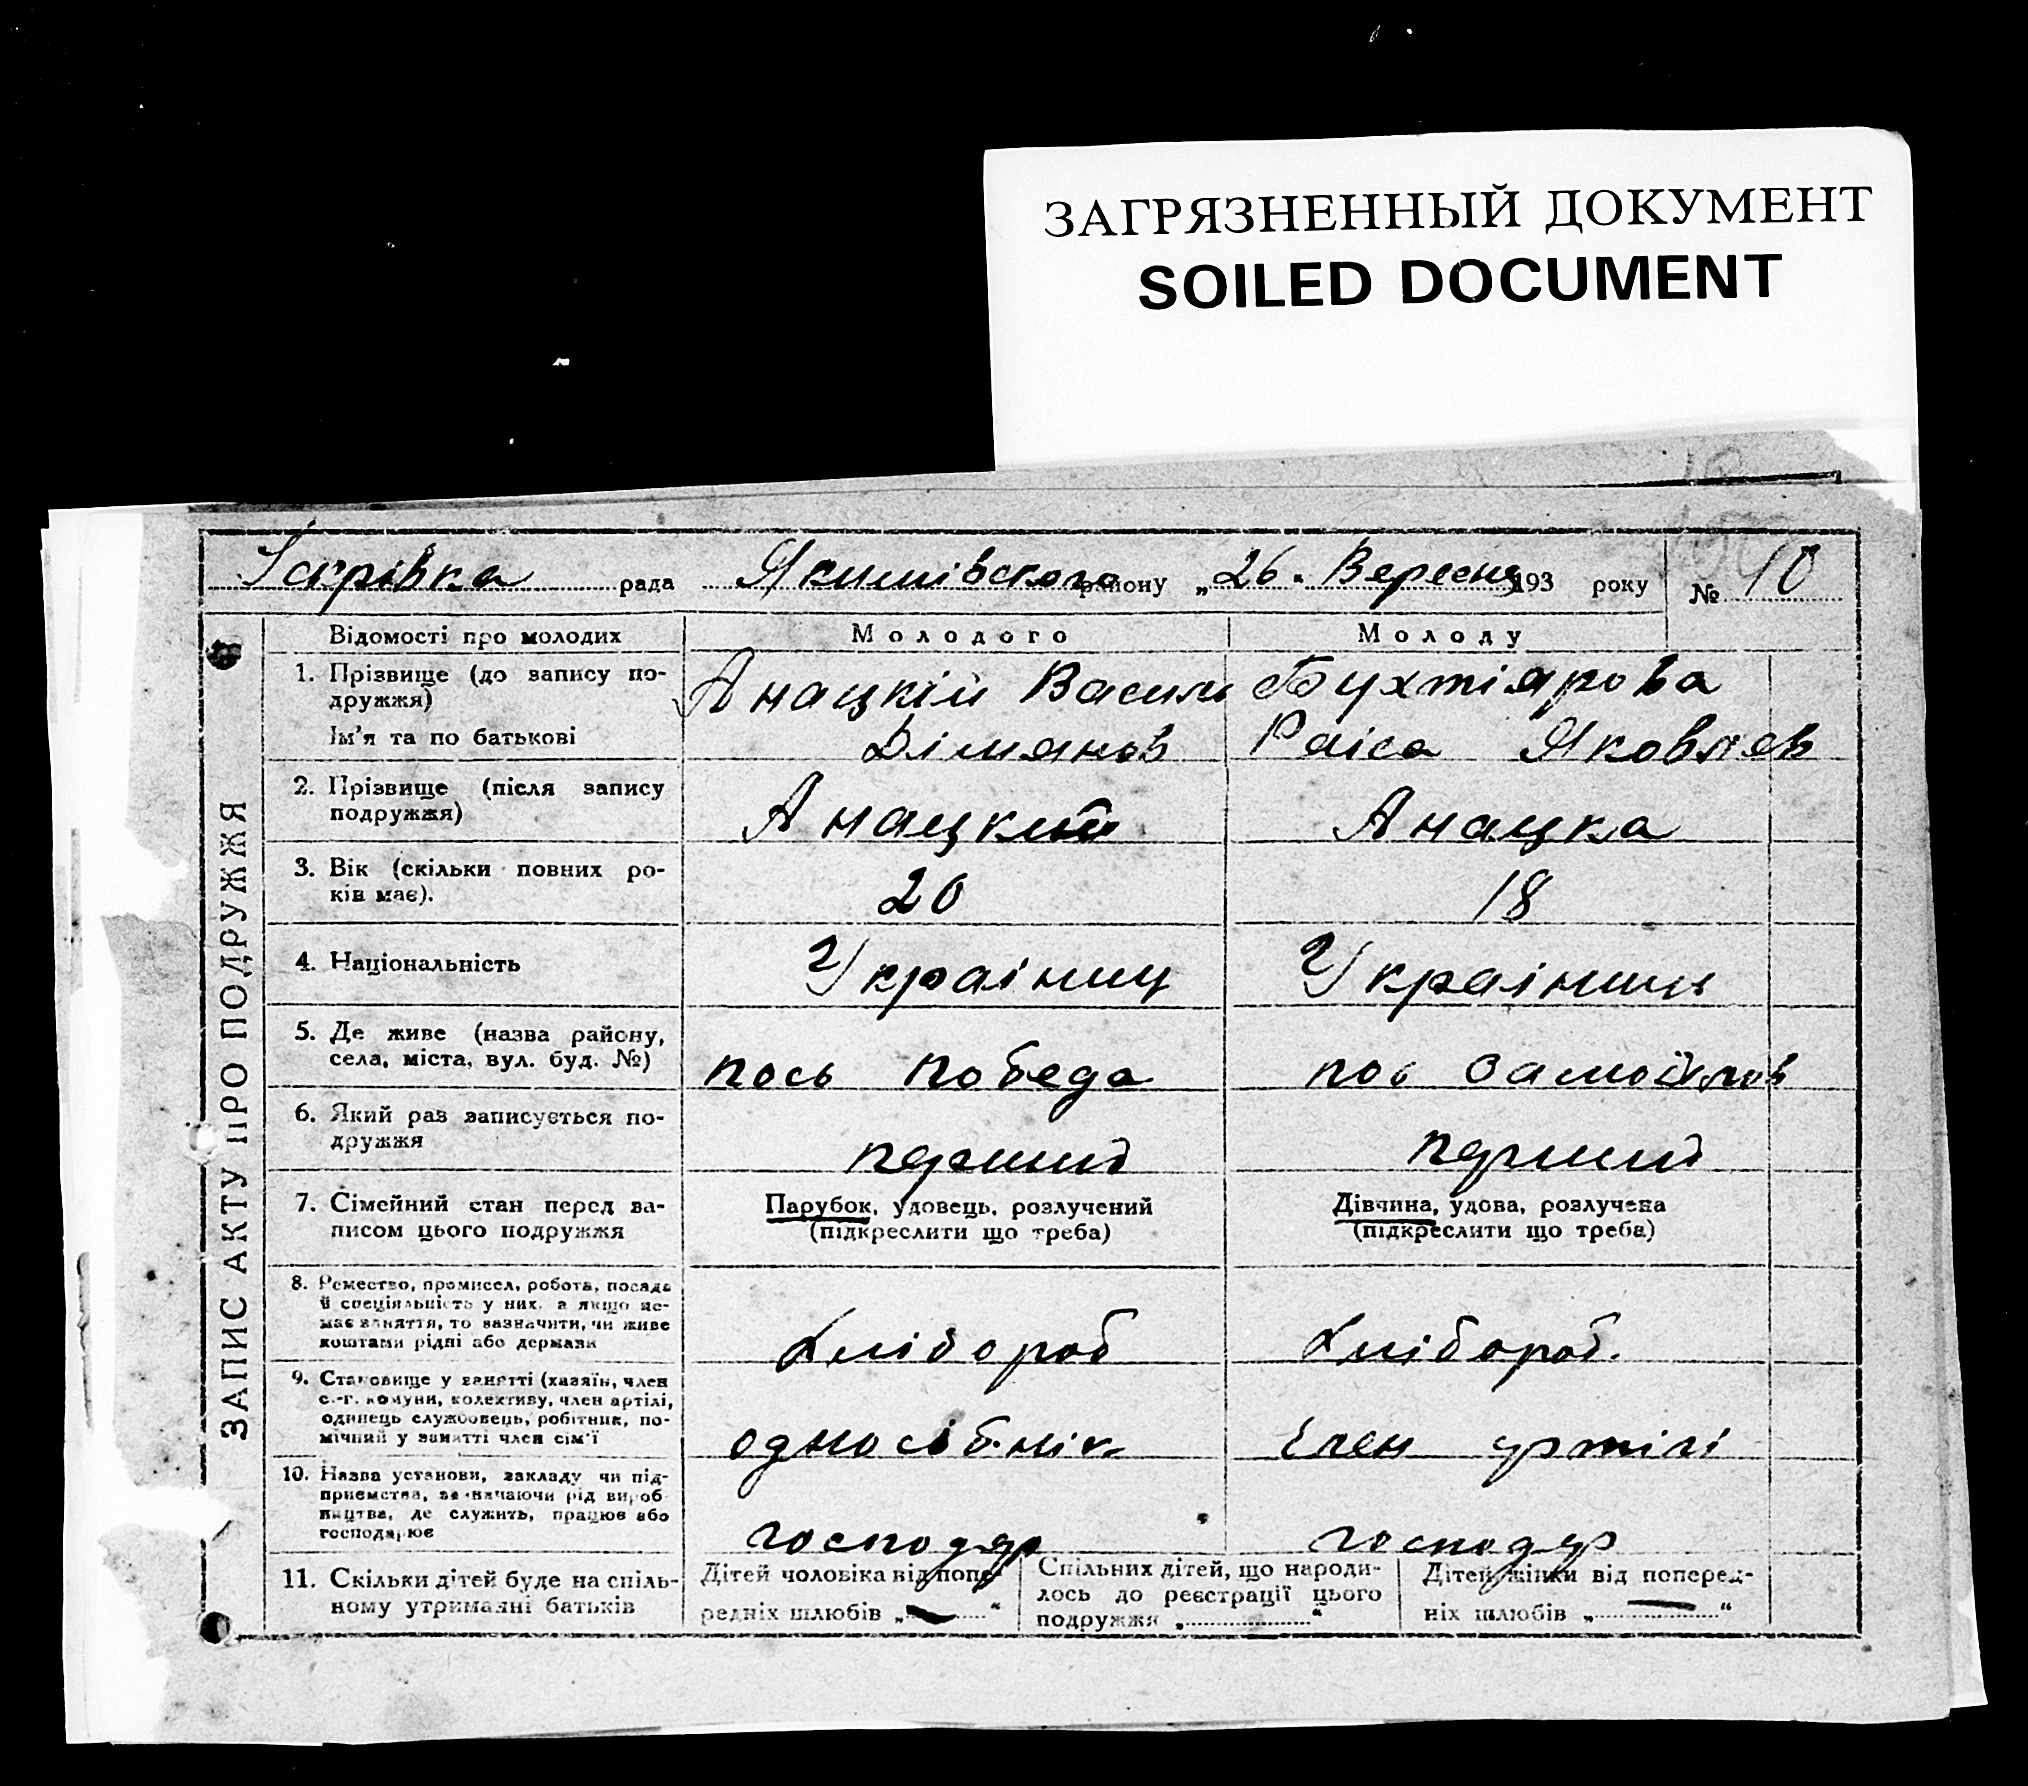 ЗАГРЯЗНЕННЫЙ ДОКУМЕНТ
SOILED DOCUMENT
Іскрівка рада Якимівского району „26" Вересня 193 року № 10
ЗАПИС АКТУ ПРО ПОДРУЖЖЯ
Відомості про молодих Молодого Молоду
1. Прізвище (до запису по-
дружжя) Анацкій Василь Бухтіярова
Ім'я та по батькові Дімянов Раіса Яковлев
2. Прізвище (після запису
подружжя) Анацкий Анацка
3. Вік (скільки повних ро-
ків має). 20 18
4. Національність Украінец Украінець
5. Де живе (назва району,
села, міста, вул. буд. №) пось победа пос
6. Який раз записується по-
дружжя перший перший
7. Сімейний стан перед за- Парубок, удовець, розлучений Дівчина, удова, розлучена
писом цього подружжя (підкреслити що треба) (підкреслити що треба)
8. Ремество, промисел, робота, посада
й спеціяльність у них, а якщо не-
має заняття, то зазначити, чи живе
коштами рідні або держави Хлібороб Хлібороб.
9. Становище у занятті (хазяїн, член
с.-г. комуни, колективу, член артілі,
одинець службовець, робітник, по-
мічний у занятті член сім'ї односібнік Член артілі
10. Назва установи, закладу чи під-
приємства, зазначаючи рід вироб-
ництва, де служить, працює або
господарює господар господар
11. Скільки дітей буде на спіль- Дітей чоловіка від попе- Спільних дітей, що народи- Дітей жінки від поперед-
ному утриманні батьків редніх шлюбів „—" лось до реєстрації цього ніх шлюбів „—"
подружжя „ "